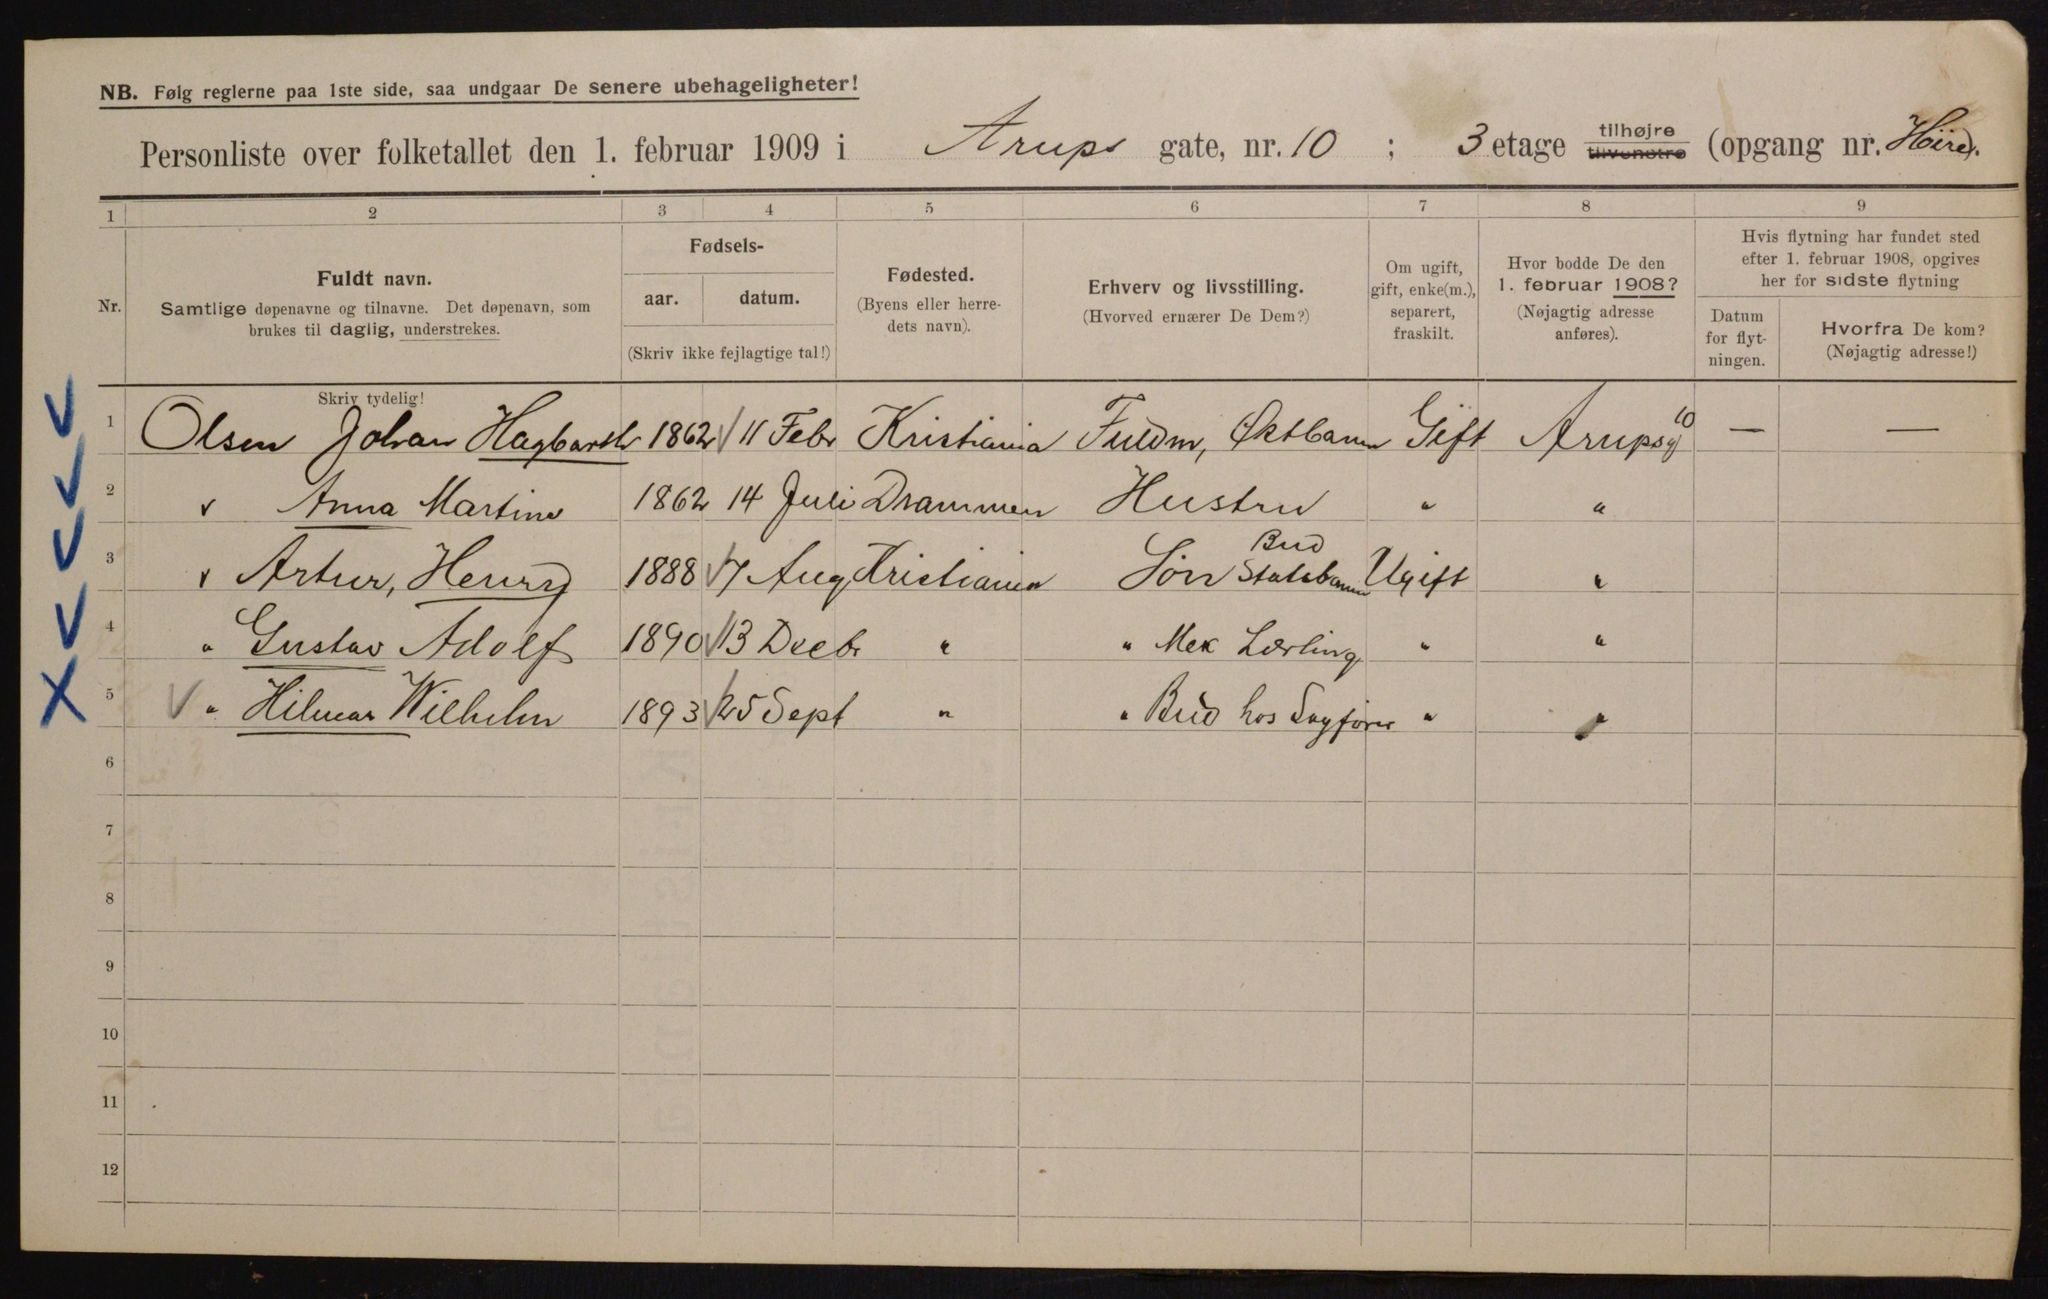 NB. Følg reglerne paa 1ste side, saa undgaar De senere ubehageligheter!
Personliste over folketallet den 1. februar 1909 i Arups gate, nr. 10 ; 3 etage tilhøjre tilvenstre (opgang nr. Höire).
1 2 3 4 5 6 7 8 9
Nr.
Fuldt navn.
Samtlige døpenavne og tilnavne. Det døpenavn, som
brukes til daglig, understrekes.
Fødsels-
aar. datum.
(Skriv ikke fejlagtige tal!)
Fødested.
(Byens eller herre-
dets navn).
Erhverv og livsstilling.
(Hvorved ernærer De Dem?)
Om ugift,
gift, enke(m.),
separert,
fraskilt.
Hvor bodde De den
1. februar 1908?
(Nøjagtig adresse
anføres).
Hvis flytning har fundet sted
efter 1. februar 1908, opgives
her for sidste flytning
Datum
for flyt-
ningen.
Hvorfra De kom?
(Nøjagtig adresse!)
Skriv tydelig!
1 Olsen Johan Hagbarth 1862 11 Febr Kristiania Fuldm, Gift Arupsg 10 — —
2 " Anna Martine 1862 14 Juli Drammen Hustru " "
3 " Artur, Henry 1888 7 Aug Kristiania Søn Bud Statsbanen Ugift "
4 " Gustav Adolf 1890 13 Decbr " " Mek Lærling " "
5 " Hilmar Wilhelm 1893 25 Sept " " Bud hos Sagfører " "
6
7
8
9
10
11
12